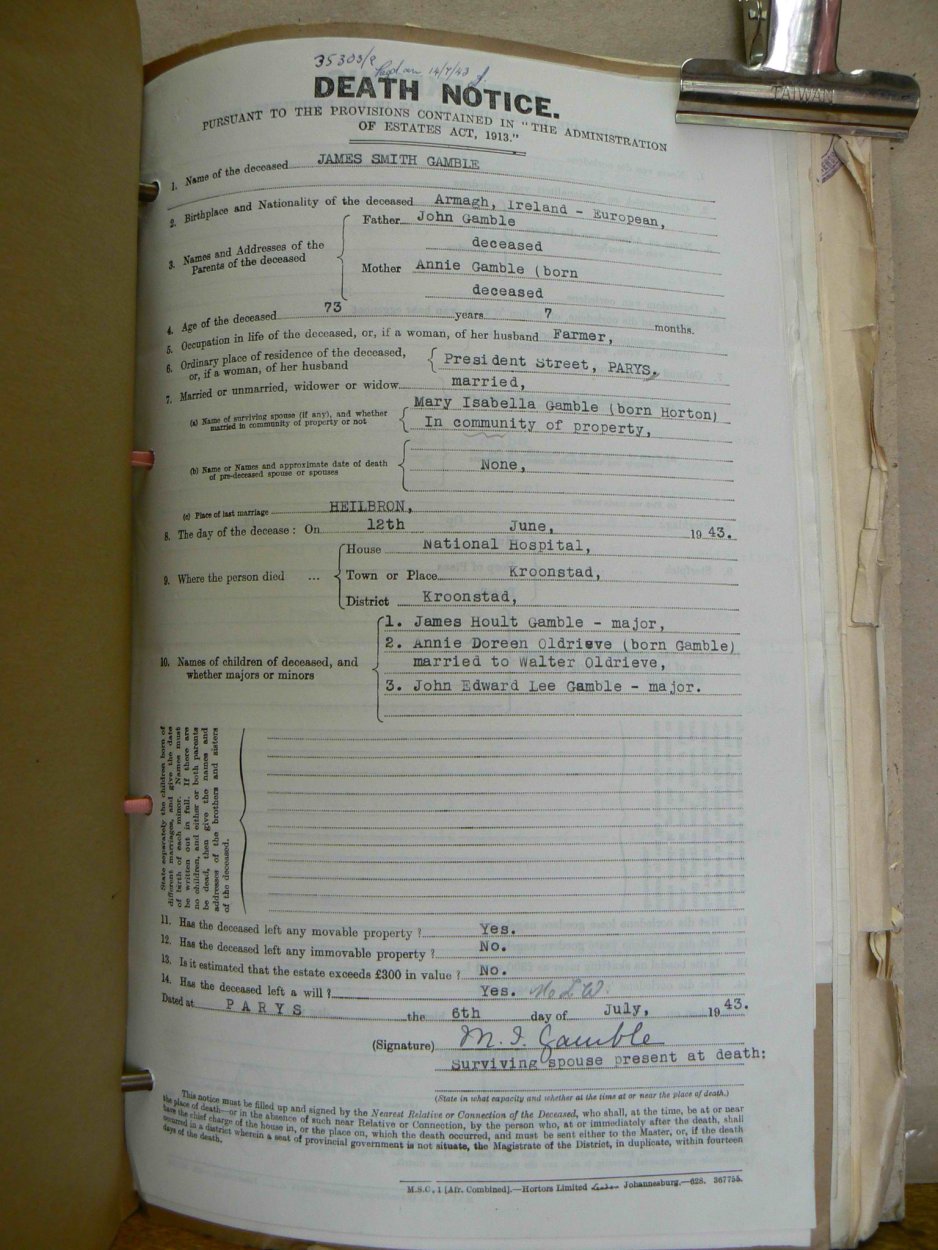 35303/2
Regd on 14/7/43
TAIWAN
DEATH NOTICE.
PURSUANT TO THE PROVISIONS CONTAINED IN "THE ADMINISTRATION
OF ESTATES ACT, 1913."
1. Name of the deceased JAMES SMITH GAMBLE
2. Birthplace and Nationality of the deceased Armagh, Ireland - European,
3. Names and Addresses of the Parents of the deceased
Father John Gamble
deceased
Mother Annie Gamble (born
deceased
4. Age of the deceased 73 years 7 months.
5. Occupation in life of the deceased, or, if a woman, of her husband Farmer,
6. Ordinary place of residence of the deceased,
or, if a woman, of her husband
President Street, PARYS.
7. Married or unmarried, widower or widow married,
(a) Name of surviving spouse (if any), and whether
married in community of property or not
Mary Isabella Gamble (born Horton)
In community of property,
(b) Name or Names and approximate date of death
of pre-deceased spouse or spouses
None,
(c) Place of last marriage HEILBRON,
8. The day of the decease: On 12th June, 1943.
9. Where the person died ...
House National Hospital,
Town or Place Kroonstad,
District Kroonstad,
10. Names of children of deceased, and
whether majors or minors
1. James Hoult Gamble - major,
2. Annie Doreen Oldrieve (born Gamble)
married to Walter Oldrieve,
3. John Edward Lee Gamble - major.
State separately the children born of
different marriages, and give the date
of birth of each minor. Names must
be written out in full. If there are
no children, and either or both parents
be dead, then give the names and
addresses of the brothers and sisters
of the deceased.
11. Has the deceased left any movable property ? Yes.
12. Has the deceased left any immovable property ? No.
13. Is it estimated that the estate exceeds £300 in value ? No.
14. Has the deceased left a will ? Yes.
Dated at PARYS the 6th day of July, 1943.
(Signature) M. I. Gamble
Surviving spouse present at death:
(State in what capacity and whether at the time at or near the place of death.)
This notice must be filled up and signed by the Nearest Relative or Connection of the Deceased, who shall, at the time, be at or near
the place of death—or in the absence of such near Relative or Connection, by the person who, at or immediately after the death, shall
have the chief charge of the house in, or the place on, which the death occurred, and must be sent either to the Master, or, if the death
occurred in a district wherein a seat of provincial government is not situate, the Magistrate of the District, in duplicate, within fourteen
days of the death.
M.S.C. 1 [Afr. Combined].—Hortors Limited Johannesburg.—628. 367755.